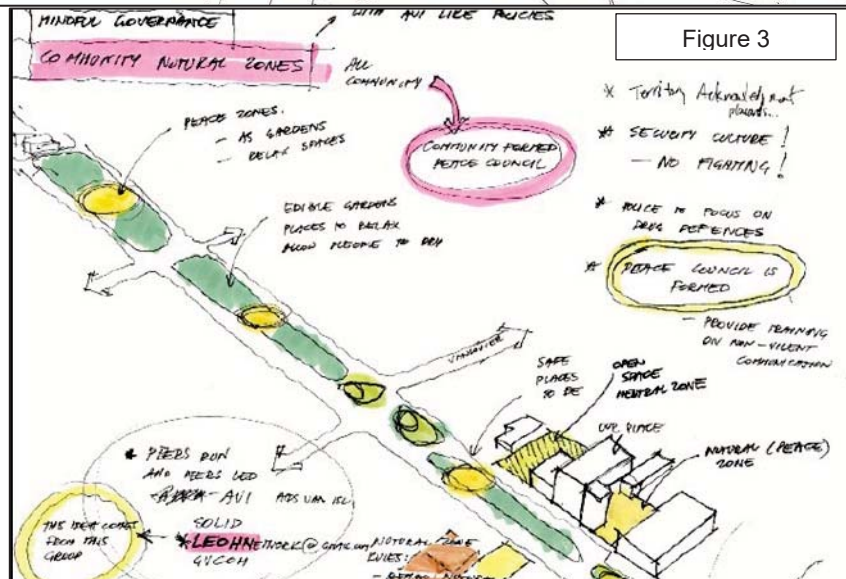 Figure 3
MINDFUL GOVERNANCE
WITH AVI LIKE POLICIES
COMMUNITY NATURAL ZONES
ALL
COMMUNITY
COMMUNITY FORMED
PEACE COUNCIL
* Territory Acknowledgment
** SECURITY CULTURE!
— NO FIGHTING!
* POLICE TO FOCUS ON
DRUG DEFENCES
* PEACE COUNCIL IS
FORMED
— PROVIDE TRAINING
ON NON-VILENT
COMMUNICATION
PEACE ZONES.
— AS GARDENS
— RELAX SPACES
EDIBLE GARDENS
PLACES TO RELAX
ALLOW PEOPLE TO
VANCOUVER
SAFE
PLACES
TO BE
OPEN
SPACE
NEUTRAL ZONE
OUR PLACE
NATURAL (PEACE)
ZONE
* PEERS RUN
AND PEERS LED
AVI
SOLID
*LEOHNETWORK@GMAIL.COM
GVCOH
THIS IDEA COMES
FROM THIS
GROUP
NATURAL ZONE
RULES: